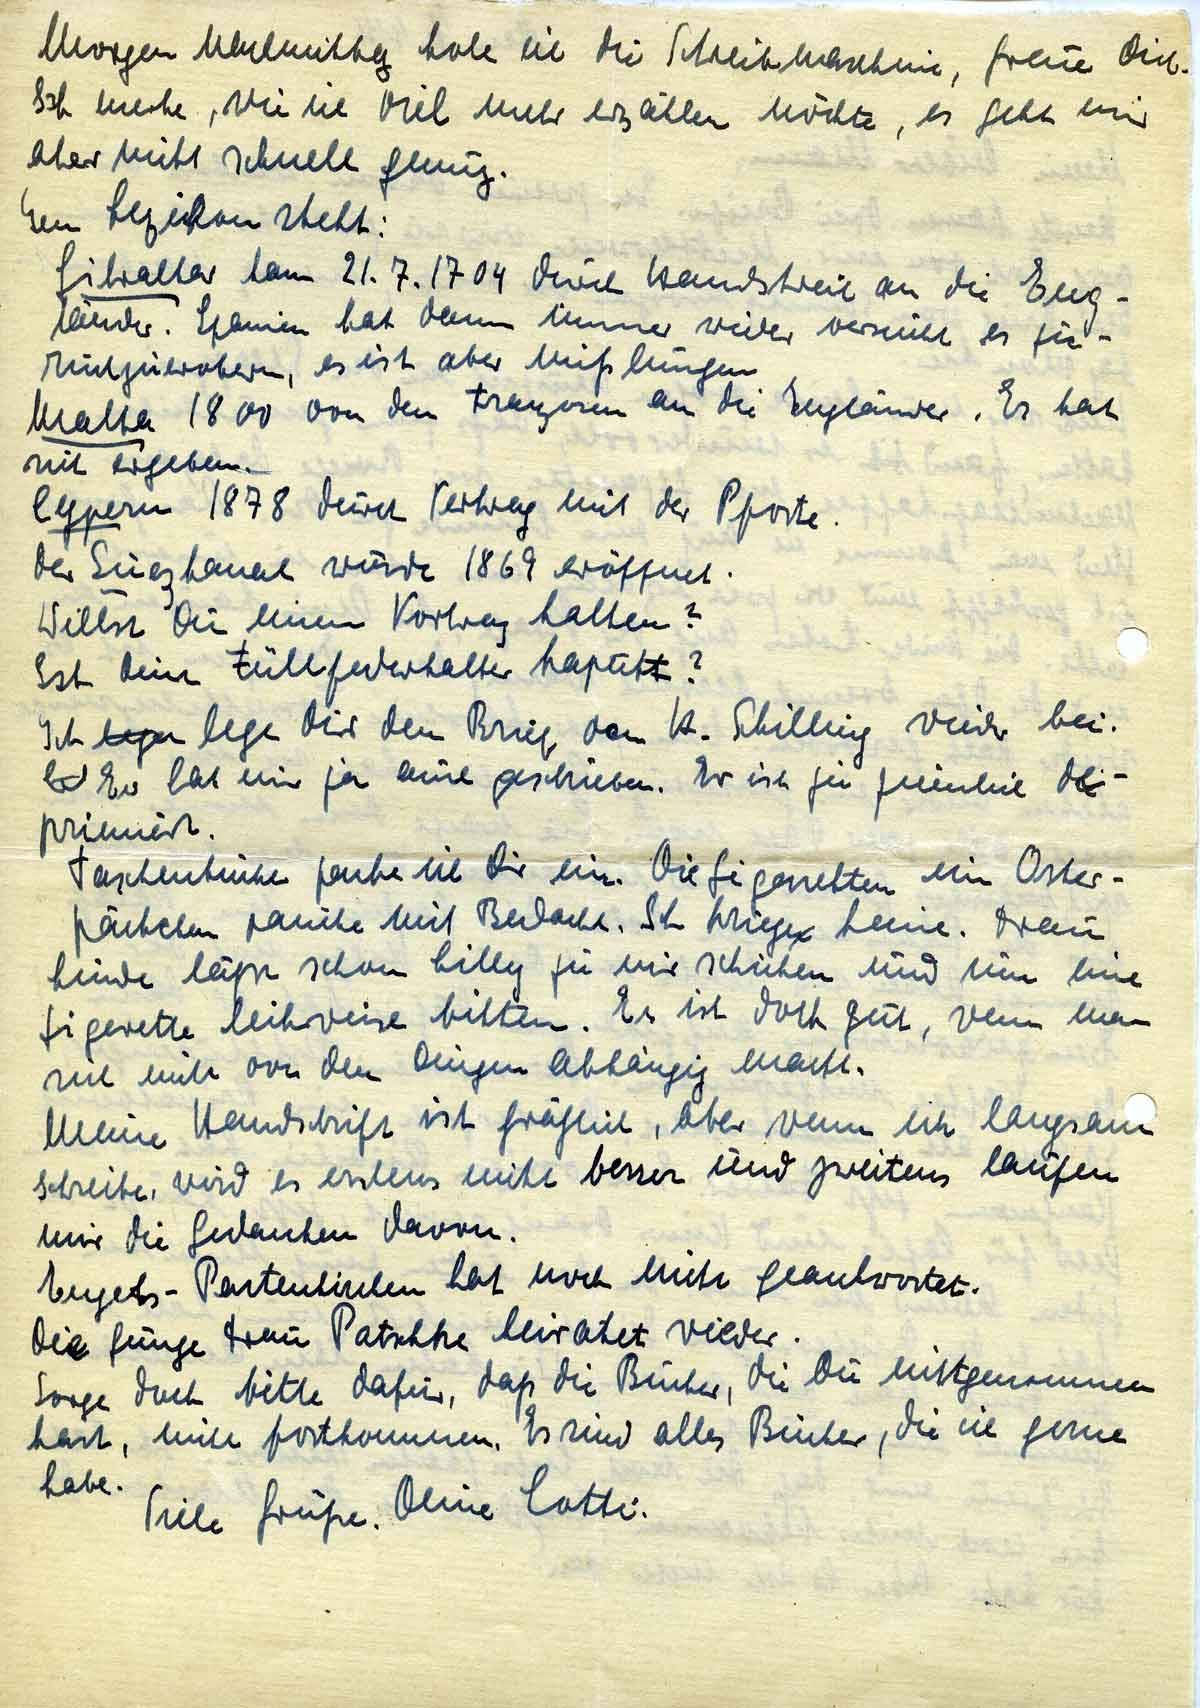 Morgen Nachmittag hole ich die Schreibmaschine, freue Dich.
Ich merke, wie ich viel mehr erzählen möchte, es geht mir
aber nicht schnell genug.
Im Lexikon steht:
Gibraltar kam 21.7.1704 durch Handstreich an die Eng-
länder. Spanien hat dann immer wieder versucht es zu-
rückzuerobern, es ist aber mißlungen
Malta 1800 von den Franzosen an die Engländer. Es hat
sich ergeben.
Cypern 1878 durch Vertrag mit der Pforte.
Der Suezkanal wurde 1869 eröffnet.
Willst Du einen Vortrag halten?
Ist Dein Füllfederhalter kaputt?
Ich legen lege Dir den Brief von H. Schilling wieder bei.
Er hat mir ja auch geschrieben. Er ist ja ziemlich de-
primiert.
Taschentücher packe ich Dir ein. Die Zigaretten im Oster-
päckchen rauche mit Bedacht. Ich kriege keine. Frau
Linde läßt schon Lilly zu mir schicken und um eine
Zigarette leihweise bitten. Es ist doch gut, wenn man
sich nicht von den Dingen abhängig macht.
Meine Handschrift ist gräßlich, aber wenn ich langsam
schreibe, wird es erstens nicht besser und zweitens laufen
mir die Gedanken davon.
Engels-Partenkirchen hat noch nicht geantwortet.
Die junge Frau Patschke heiratet wieder.
Sorge doch bitte dafür, daß die Bücher, die Du mitgenommen
hast, nicht fortkommen. Es sind alles Bücher, die ich gerne
habe.
Viele Grüße. Deine Lotti.